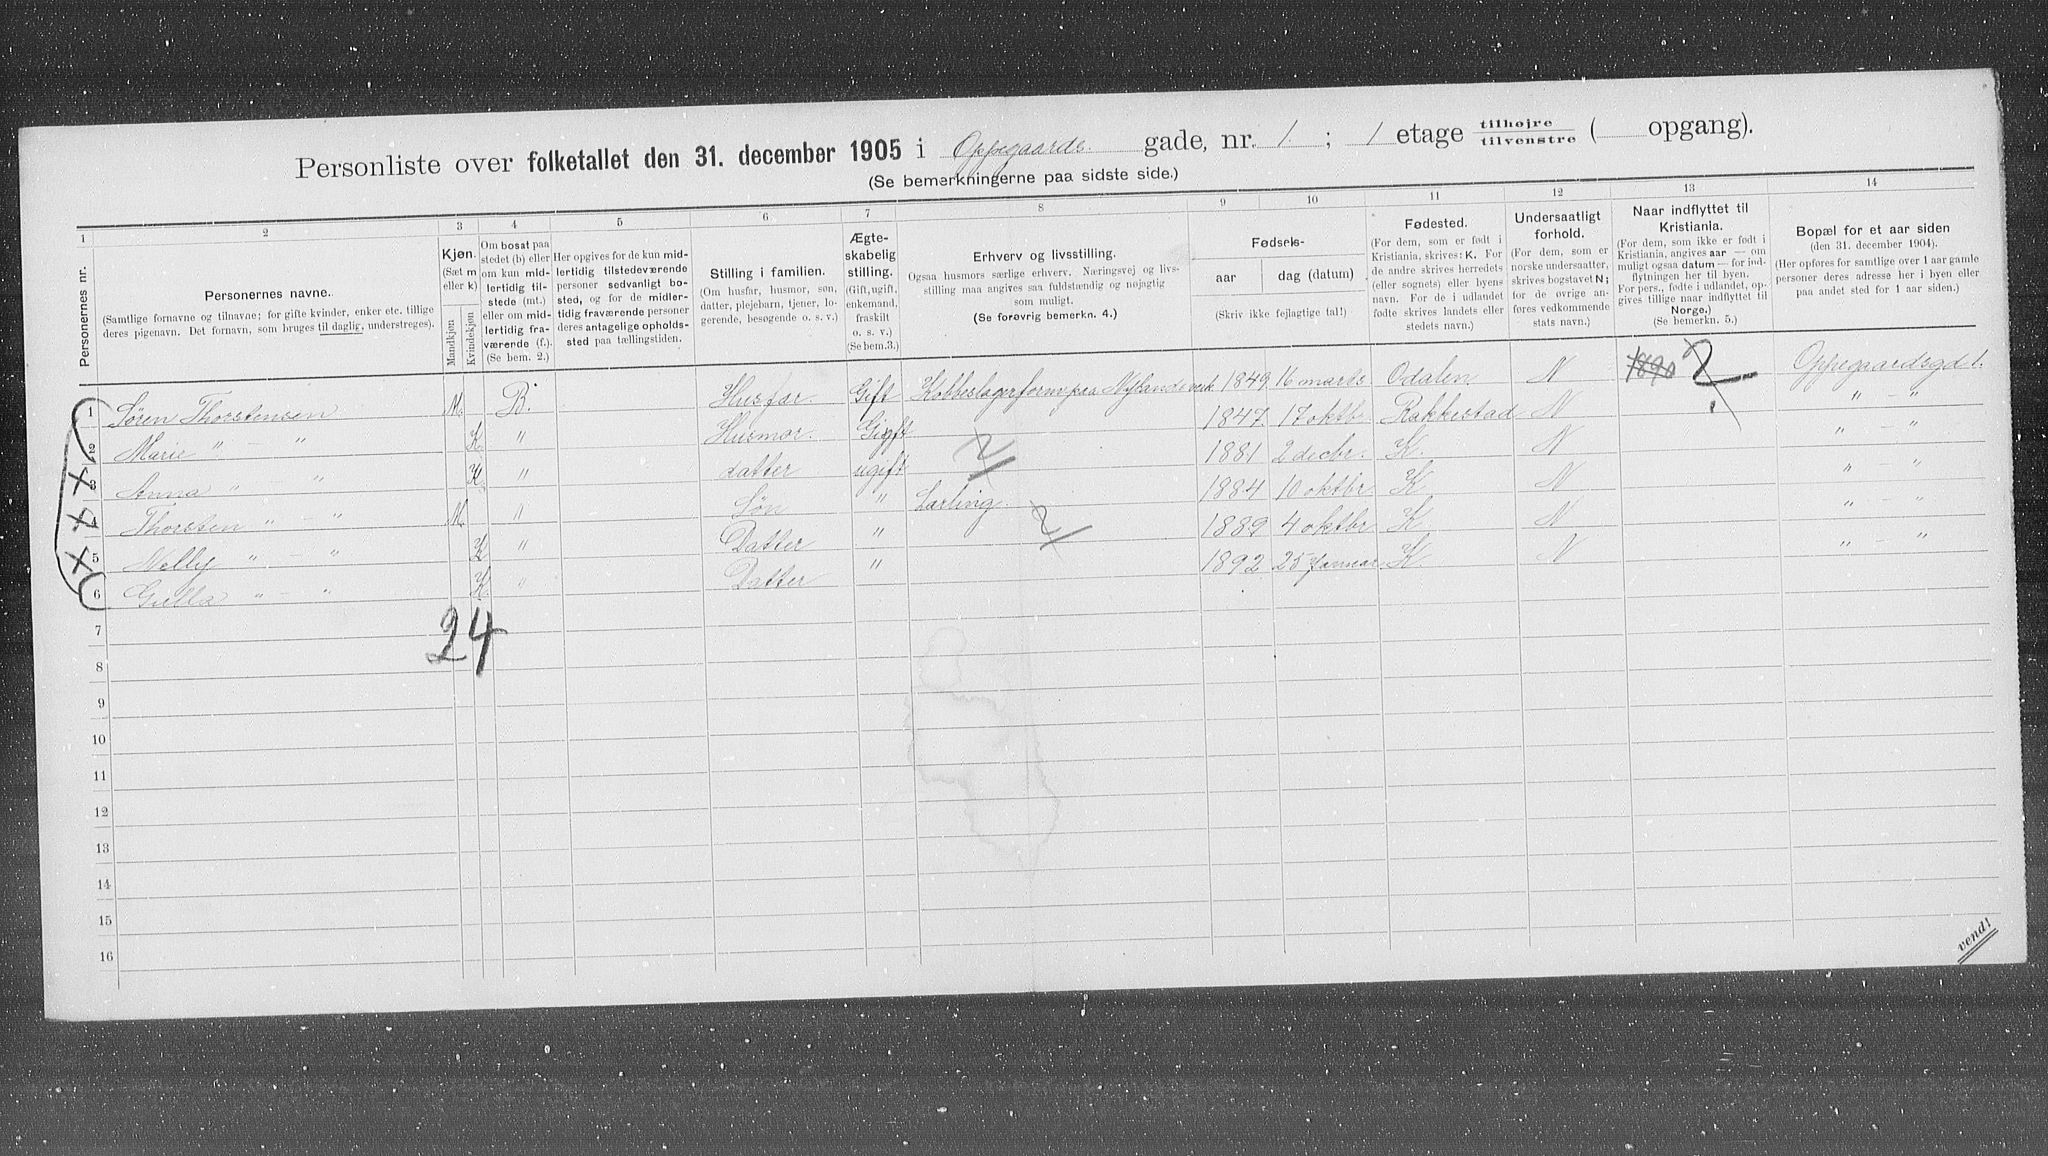 Personliste over folketallet den 31. december 1905 i Oppegaards gade, nr. 1. ; 1 etage tilhøjre tilvenstre ( opgang).
(Se bemerkningerne paa sidste side.)
1 2 3 4 5 6 7 8 9 10 11 12 13 14
Personernes nr.
Personernes navne.
(Samtlige fornavne og tilnavne; for gifte kvinder, enker etc. tillige deres pigenavn. Det fornavn, som bruges til daglig, understreges).
Kjøn.
(Sæt m eller k)
Mandkjøn
Kvindekjøn
Om bosat paa stedet (b) eller om kun midlertidig tilstede (mt.) eller om midlertidig fraværende (f.). (Se bem. 2.)
Her opgives for de kun midlertidig tilstedeværende personer sedvanligt bosted, og for de midlertidig fraværende personer deres antagelige opholdssted paa tællingstiden.
Stilling i familien.
(Om husfar, husmor, søn, datter, plejebarn, tjener, logerende, besøgende o. s. v.)
Ægteskabelig stilling.
(Gift, ugift, enkemand, fraskilt o. s. v.)
(Se bem.3.)
Erhverv og livsstilling.
Ogsaa husmors særlige erhverv. Næringsvej og livsstilling maa angives saa fuldstændig og nøjagtig som muligt.
(Se forøvrig bemerkn. 4.)
Fødsels-
aar dag (datum)
(Skriv ikke fejlagtige tal!)
Fødested.
(For dem, som er født i Kristiania, skrives: K. For de andre skrives herredets (eller sognets) eller byens navn. For de i udlandet fødte skrives landets eller stedets navn.)
Undersaatligt forhold.
(For dem, som er norske undersaatter, skrives bogstavet N; for de øvrige anføres vedkommende stats navn.)
Naar indflyttet til Kristiania.
(For dem, som ikke er født i Kristiania, angives aar — om muligt ogsaa datum — for indflytningen her til byen. For pers., fødte i udlandet, opgives tillige naar indflyttet til Norge.)
(Se bemerkn. 5.)
Bopæl for et aar siden
(den 31. december 1904).
(Her opføres for samtlige over 1 aar gamle personer deres adresse her i byen eller paa andet sted for 1 aar siden.)
1 Søren Thorstensen M. B. Husfar Gift Kobbeslagerform paa Nylands verk 1849 16 marts Odalen N 1890 ? Oppegaardsgd 1.
2 Marie " — " K " Husmor. Gift 1847. 17 oktbr Rakkestad N " — "
3 Anna " " K " datter ugift 1881 2 decbr. K. N " — "
4 Thorsten " — " M " Søn " Lærling. 1884 10 oktbr. K N " — "
5 Nelly " — " K " Datter " 1889 4 oktbr K N " — "
6 " — " K " Datter " 1892 25 Januar K N " — "
24
7
8
9
10
11
12
13
14
15
16
vend!